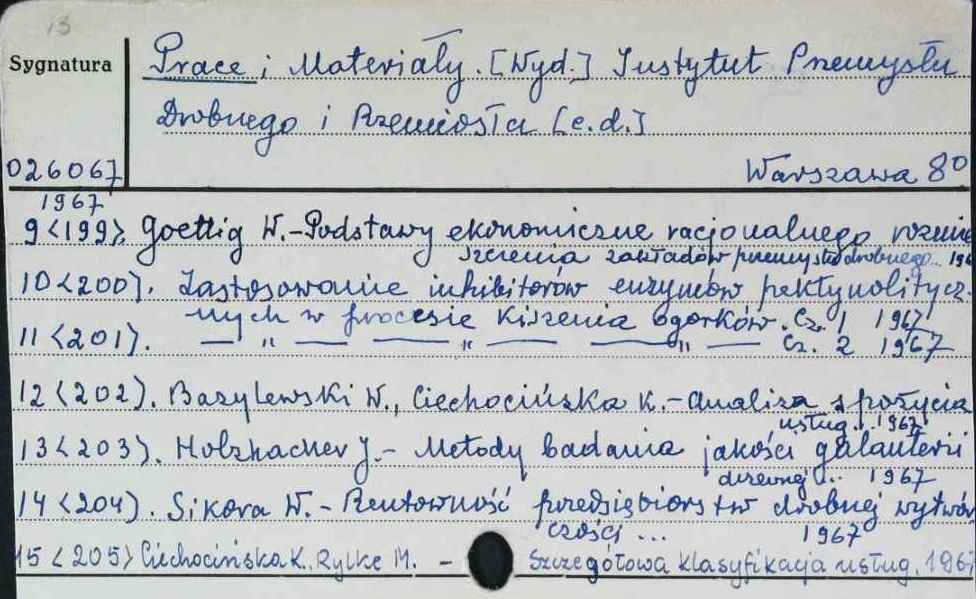 13
Sygnatura
Prace i Materiały. [Wyd.] Instytut Przemysłu
Drobnego i Rzemiosła [e.d.]
026067
Warszawa 8°
1967
9 <199>. Goettig W.-Podstawy ekonomiczne racjonalnego rozmie
szczenia zakładów przemysłu drobnego... 196
10 <200>. Zastosowanie inhibitorów enzymów pektynolitycz.
nych w procesie kiszenia ogórków. Cz. 1 1967
11 <201>. — " — — " — — " — Cz. 2 1967
12 <202>. Bazylewski W., Ciechocińska K.-Analiza spożycia
usług... 1967
13 <203>. Holzhacker J.- Metody badania jakości galanterii
drzewnej... 1967
14 <204>. Sikora W.- Rentowność przedsiębiorstw drobnej wytwór
czości ... 1967
15 <205> Ciechocińska K., Rylke M. - Szczegółowa klasyfikacja usług. 1967